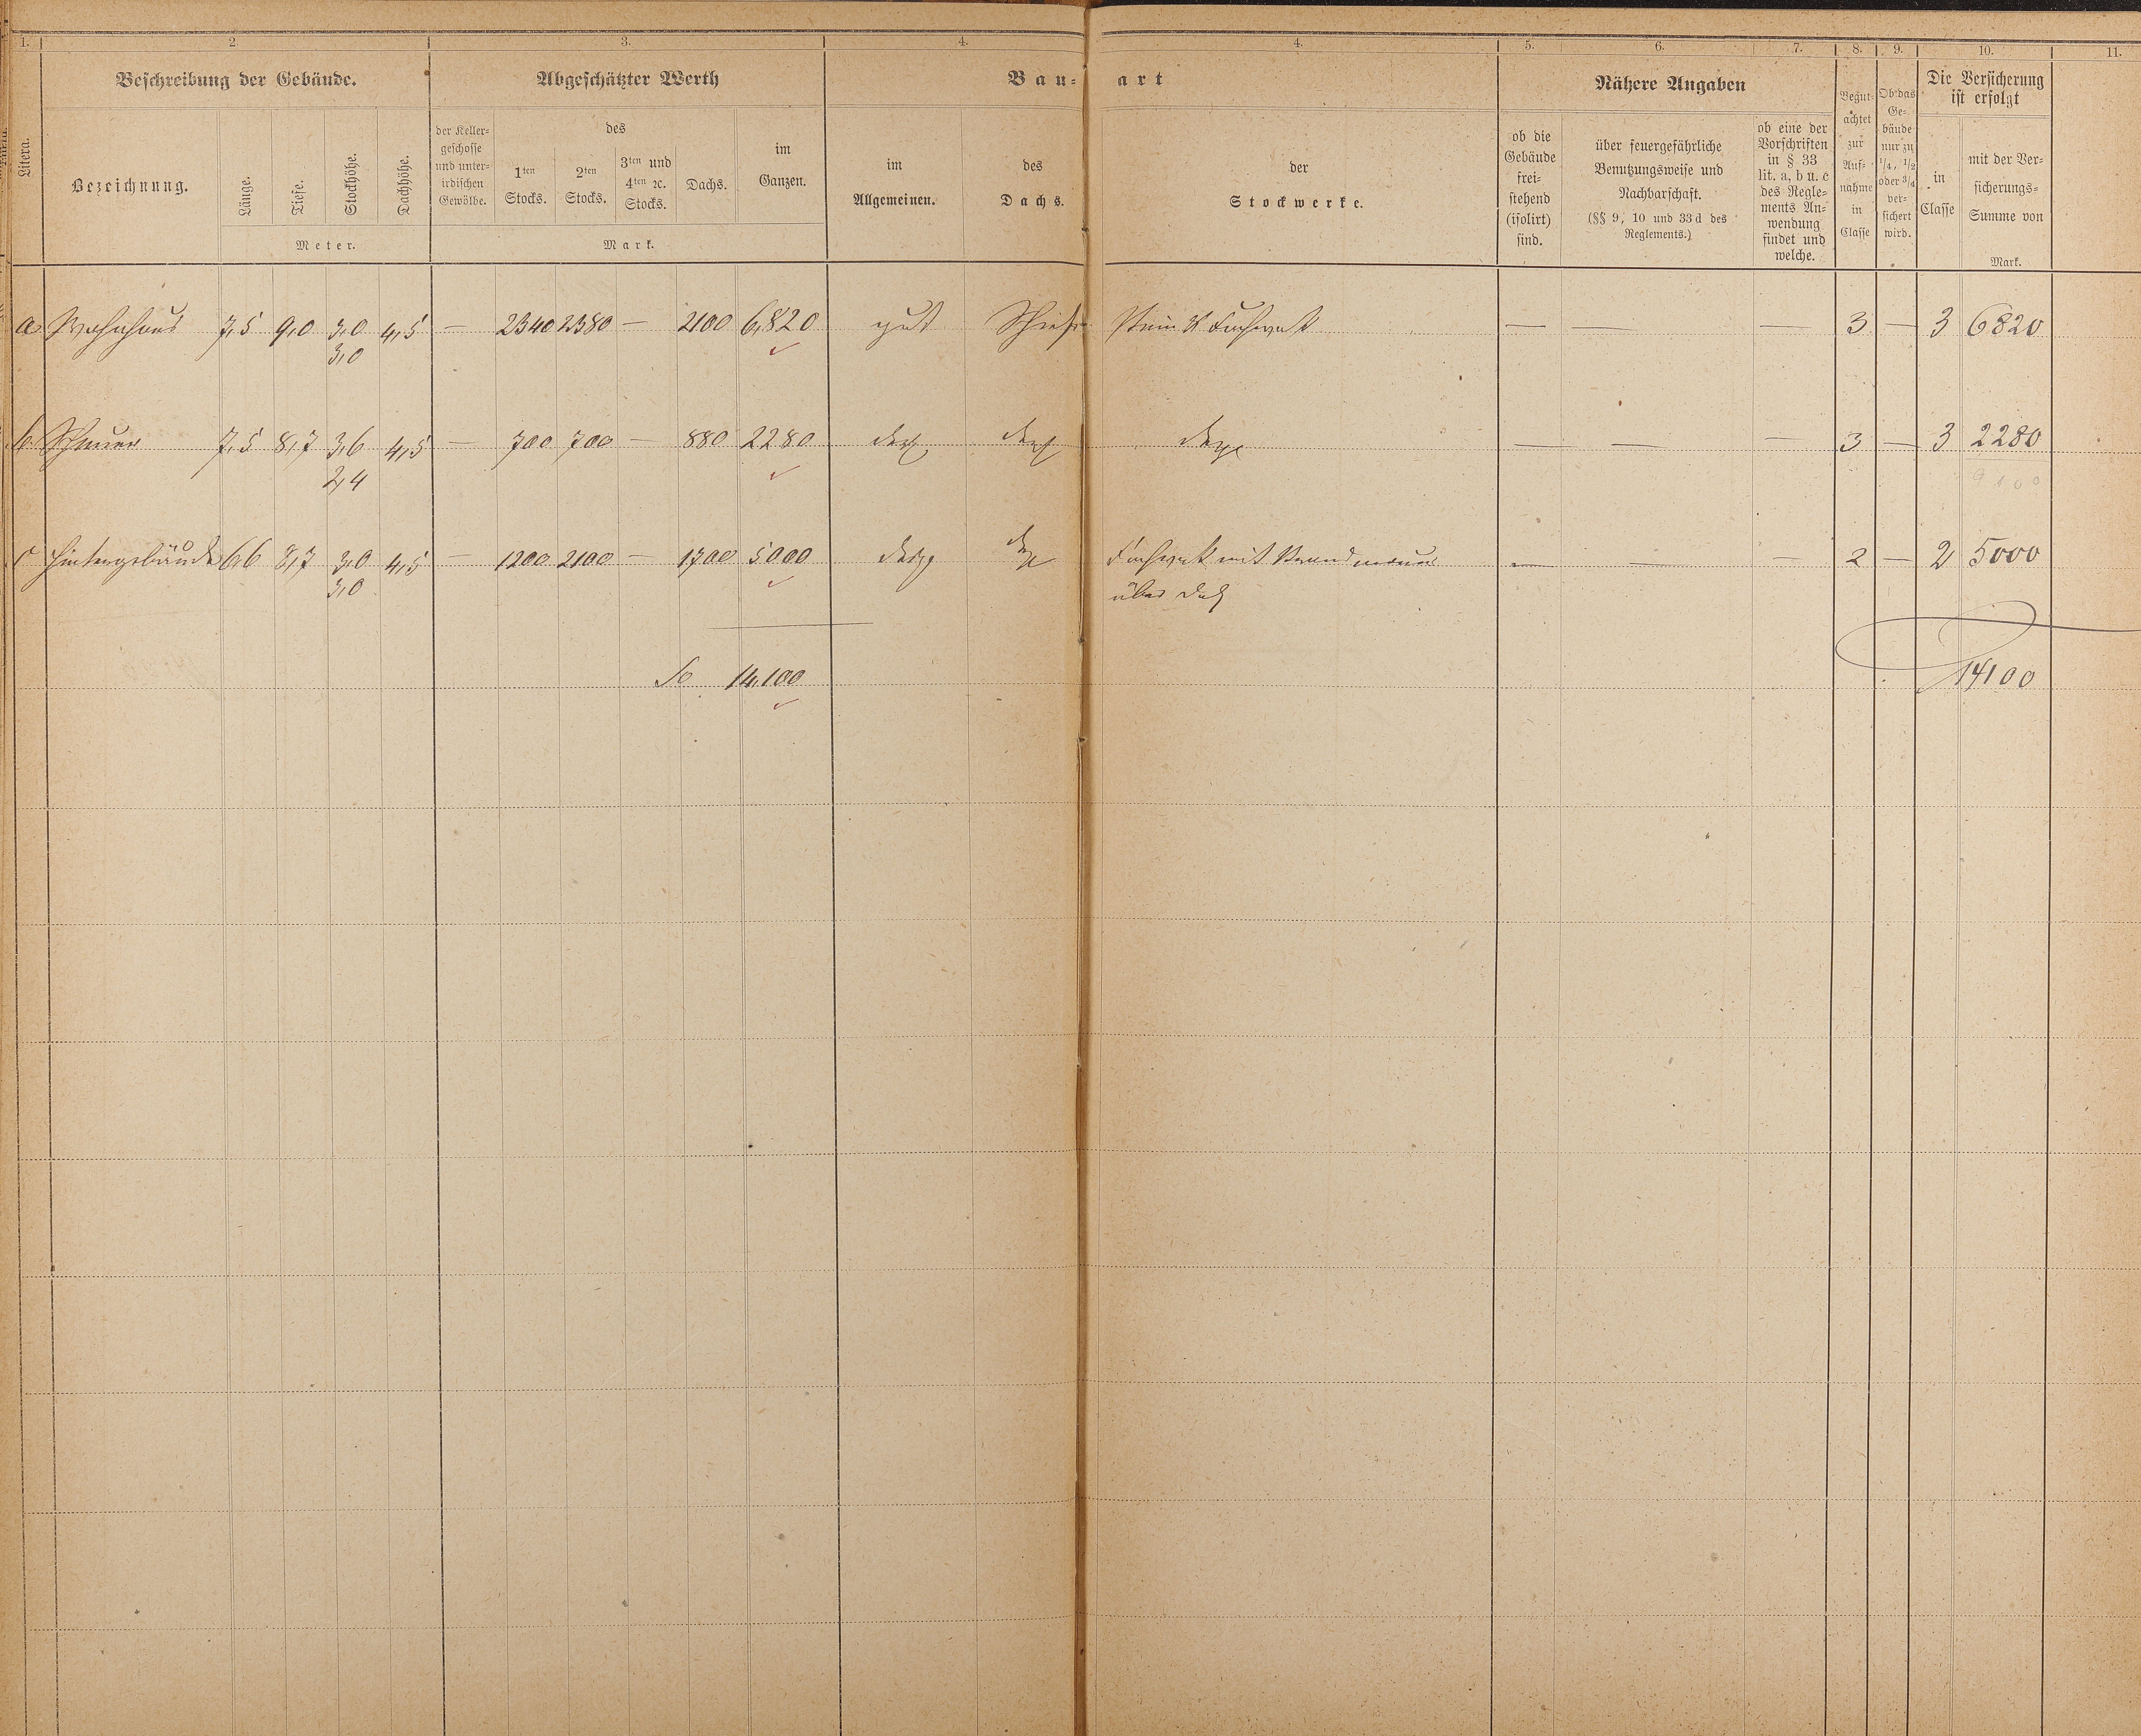 1. 2. 3. 4. 4. 5. 6. 7. 8. 9. 10. 11.
Beschreibung der Gebäude. Abgeschätzter Werth Bau- art Nähere Angaben Die Versicherung ist erfolgt
Litera.
Bezeichnung.
Länge.
Tiefe.
Stockhöhe.
Dachhöhe.
Meter.
der Keller-
geschosse
und unter-
irdischen
Gewölbe.
des
1ten Stocks.
2ten Stocks.
3ten und
4ten ꝛc.
Stocks.
Dachs.
im
Ganzen.
Mark.
im
Allgemeinen.
des
Dachs.
der
Stockwerke.
ob die
Gebäude
frei-
stehend
(isolirt)
sind.
über feuergefährliche
Benutzungsweise und
Nachbarschaft.
(§§ 9, 10 und 33 d des
Reglements.)
ob eine der
Vorschriften
in § 33
lit. a, b u. c
des Regle-
ments An-
wendung
findet und
welche.
Begut-
achtet
zur
Auf-
nahme
in
Classe
Ob das
Ge-
bäude
nur zu
1/4, 1/2
oder 3/4
ver-
sichert
wird.
in
Classe
mit der Ver-
sicherungs-
Summe von
Mark.
a Wohnhaus 7,5 9,0 3,0 4,5 — 2340 2380 — 2100 6,820 gut Schiefer Stein & Fachwerk — — — 3 — 3 6820
3,0
b. Scheuer 7,5 8,7 3,6 4,5 — 700 700 — 880 2280 desgl desgl desgl — — — 3 — 3 2280
2,4 9100
c Hintergebäude 6,6 8,7 3,0 4,5 — 1200 2100 — 1700 5000 desgl desgl Fachwerk mit Brandmauer — — — 2 — 2 5000
3,0 über Dach
Sa 14,100 14100